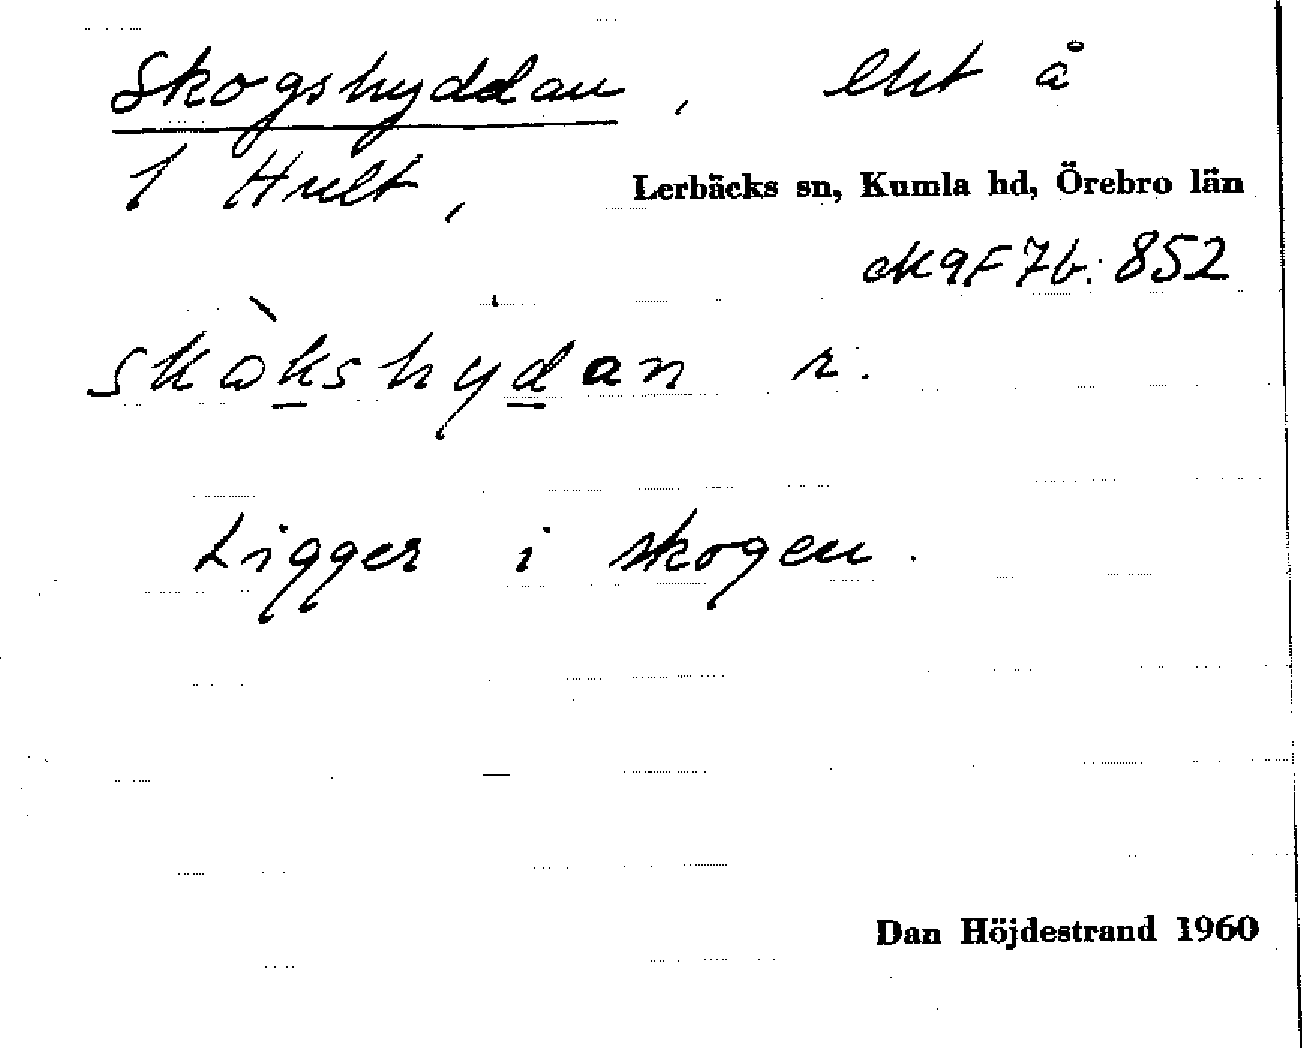 Skogshyddan, lht å
1 Hult,
Lerbäcks sn, Kumla hd, Örebro län
ek 9F 7b: 852
skòkshýdan r.
Ligger i skogen.
Dan Höjdestrand 1960